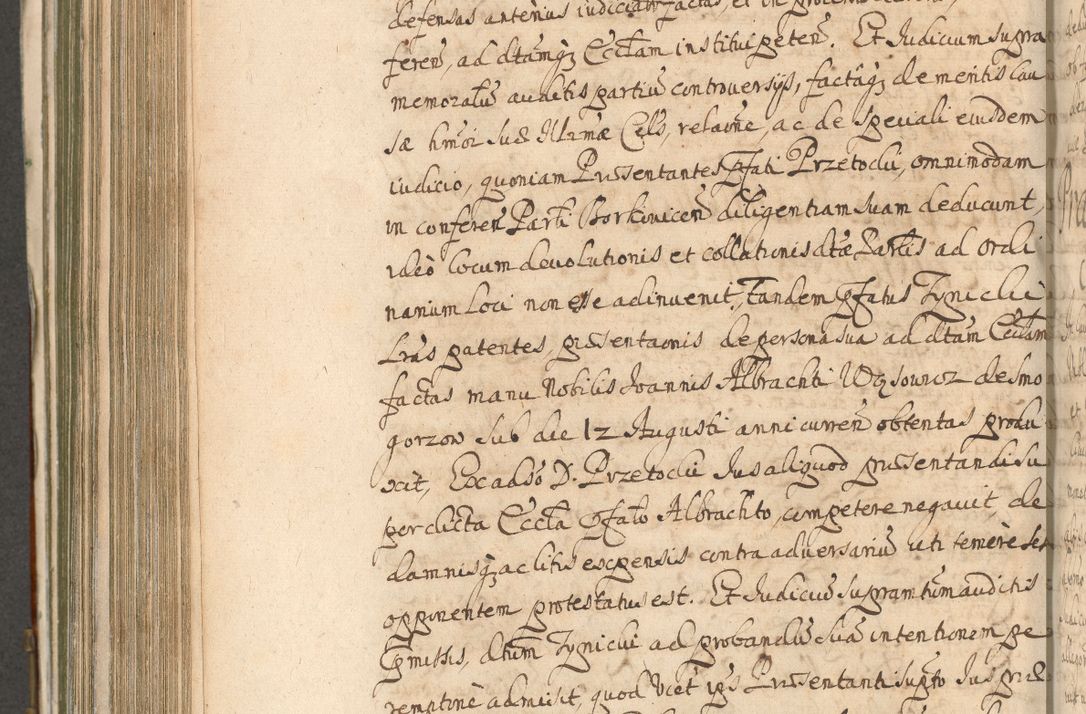 defensas anterius iudiciarr factas, et in
feren̄, ad dtāmqȝ Eccłam institui peten̄. Et Judicium supra
memoratū auditis partiū controversijs, factaqȝ de meritis cau
sæ hmōi suæ Illmæ Cels, relaōne, ac de speciali eiusdem
iudicio, quoniam Præsentantes pfati Przetocki, omnimodam
in conferen̄ Parti Borkovicen̄ diligentiam suam deducunt,
ideò locum devolutionis et collationis dtæ Partis ad Ordi
narium Loci non esse adinvenit, Tandem pfatus Zynicki
Lrās patentes, præsentaōnis de persona sua ad dtām Eccłam
factas manu Nobilis Joannis Albrachti Wąsowicz de Smo
gorzow sub die 12 Augusti anni curren̄ obtentas produ
xit, Ex adso D. Przetocki Jus aliquod præsentandi su
per dicta Eccła pfato Albrachto, competere negavit, de
damnisqȝ ac litis expensis contra adversariū uti temerè se
opponentem protestatus est. Et Judiciū supramtūm auditis
pmissis, dtum Zynicki ad probandū suā intentionem pe
remptoriè admisit, quod licet ips Præsentanti supto Jus præ